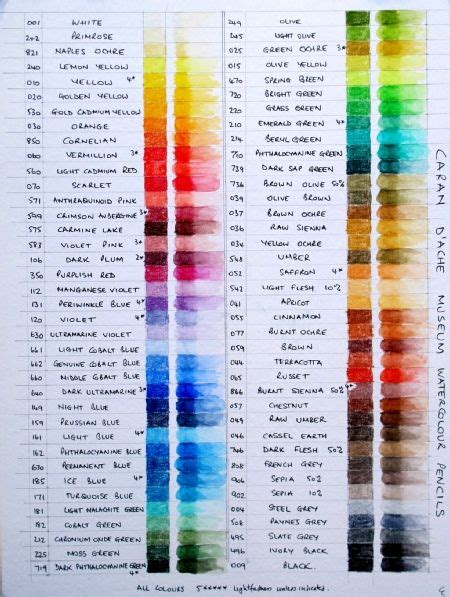 001 WHITE
242 PRIMROSE
821 NAPLES OCHRE
240 LEMON YELLOW
010 YELLOW 4*
020 GOLDEN YELLOW
530 GOLD CADMIUM YELLOW
030 ORANGE
850 CORNELIAN
060 VERMILLION 3*
560 LIGHT CADMIUM RED
070 SCARLET
571 ANTHRAQUINOID PINK
599 CRIMSON AUBERGINE 3*
575 CARMINE LAKE
583 VIOLET PINK 3*
106 DARK PLUM 2*
350 PURPLISH RED
112 MANGANESE VIOLET
131 PERIWINKLE BLUE 4*
120 VIOLET 4*
630 ULTRAMARINE VIOLET
661 LIGHT COBALT BLUE
662 GENUINE COBALT BLUE
660 MIDDLE COBALT BLUE
640 DARK ULTRAMARINE 3*
149 NIGHT BLUE
159 PRUSSIAN BLUE
161 LIGHT BLUE 4*
162 PHTHALOCYANINE BLUE
670 PERMANENT BLUE
185 ICE BLUE 4*
171 TURQUOISE BLUE
181 LIGHT MALACHITE GREEN
182 COBALT GREEN
212 CHROMIUM OXIDE GREEN
225 MOSS GREEN
719 DARK PHTHALOCYANINE GREEN 4*
249 OLIVE
245 LIGHT OLIVE
025 GREEN OCHRE 3*
015 OLIVE YELLOW
470 SPRING GREEN
720 BRIGHT GREEN
220 GRASS GREEN
210 EMERALD GREEN 4*
214 BERYL GREEN
710 PHTHALOCYANINE GREEN
739 DARK SAP GREEN
736 BROWN OLIVE 50%
039 OLIVE BROWN
037 BROWN OCHRE
036 RAW SIENNA
034 YELLOW OCHRE
548 UMBER
052 SAFFRON 4*
542 LIGHT FLESH 10%
041 APRICOT
055 CINNAMON
077 BURNT OCHRE
059 BROWN
044 TERRACOTTA
065 RUSSET
866 BURNT SIENNA 50% 4*
057 CHESTNUT
049 RAW UMBER
046 CASSEL EARTH
746 DARK FLESH 50%
808 FRENCH GREY
906 SEPIA 50%
902 SEPIA 10%
004 STEEL GREY
508 PAYNES GREY
495 SLATE GREY
496 IVORY BLACK
009 BLACK.
CARAN D'ACHE MUSEUM WATERCOLOUR PENCILS
ALL COLOURS 5***** lightfastness unless indicated.